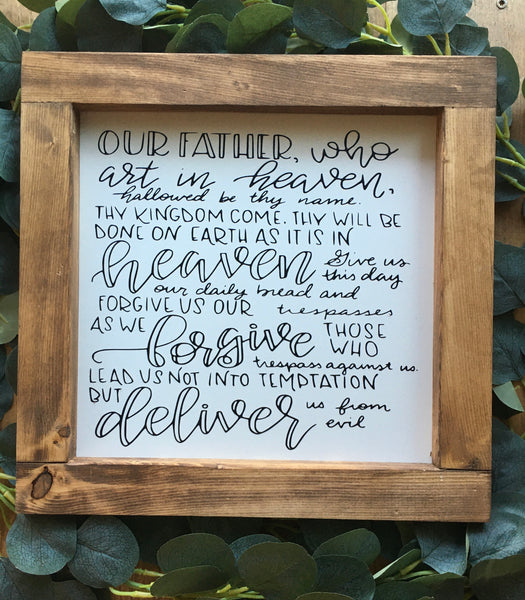 OUR FATHER, who
art in heaven,
hallowed be thy name.
THY KINGDOM COME. THY WILL BE
DONE ON EARTH AS IT IS IN
heaven Give us
this day
our daily bread and
FORGIVE US OUR trespasses
AS WE forgive THOSE
WHO
trespass against us.
LEAD US NOT INTO TEMPTATION
BUT
deliver us from
evil